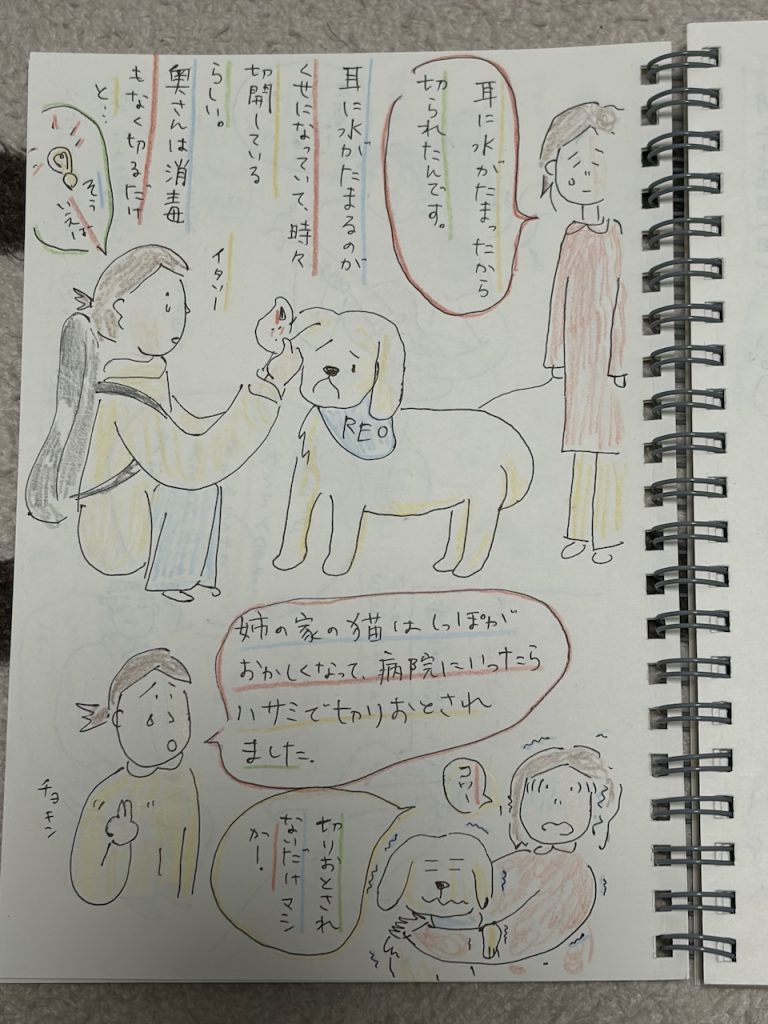 耳に水がたまったから
切られたんです。
耳に水がたまるのが
くせになっていて、時々
切開している
らしい。
奥さんは消毒
もなく切るだけ
と…
そう
いえば
イタソー
REO
姉の家の猫はしっぽが
おかしくなって、病院にいったら
ハサミで切りおとされ
ました.
チョキン
コワイー
切りおとされ
ないだけマシ
か!